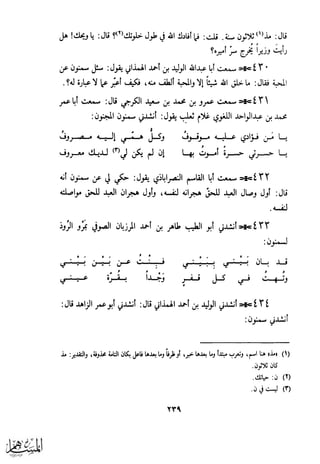 قال: مذ(١) ثلاثون سنة. قلت: فما أفادك الله في طول خلوتك(٢)؟ قال: يا ويحك! هل
رأيت وزيراً يُخرج سرّ أميره؟
٤٣٠ سمعت أبا عبدالله الوليد بن أحمد الهمذاني يقول: سئل سمنون عن
المحبة فقال: ما خلق الله شيئاً إلا والمحبة ألطف منه، فكيف أعبّر عما لا عبارة له؟.
٤٣١ سمعت عمرو بن محمد بن سعيد الكرجي قال: سمعت أبا عمر
محمد بن عبدالواحد اللغوي غلام ثعلب يقول: أنشدني سمنون المجنون:
يـا مَـن فـؤادي عـلـيـه مـوقـوفُ وكـلُّ هـمّـي إلـيـه مـصـروفُ
يـا حـسـرتي حـسـرةً أمـوتُ بهـا إن لم يكن لي(٣) لـديـك معـروف
٤٣٢ سمعت أبا القاسم النصراباذي يقول: حكي لي عن سمنون أنه
قال: أول وصال العبد للحق هجرانه لنفسه، وأول هجران العبد للحق مواصلته
لنفسه.
٤٣٣ أنشدني أبو الطيب طاهر بن أحمد المرزبان الصوفي بَمرْو الرُّوذ
لسمنون:
قـد بـان بَـيْـنـي بِـبَـيْـنـي فَـبِـنْـتُ عـن بَـيْـن بَـيْـنـي
وتُـهـتُ فـي كـل قـفـر وَجْـداً بـقُـرَّة عـيـنـي
٤٣٤ أنشدني الوليد بن أحمد الهمذاني قال: أنشدني أبو عمر الزاهد قال:
أنشدني سمنون:
(١) «مذ» هنا اسم، وتعرب مبتدأ وما بعدها خبر، أو ظرفاً وما بعدها فاعل بكان التامة محذوفة، والتقدير: مذ
كان ثلاثون.
(٢) ن: حياتك.
(٣) ليست في ن.
٢٣٩